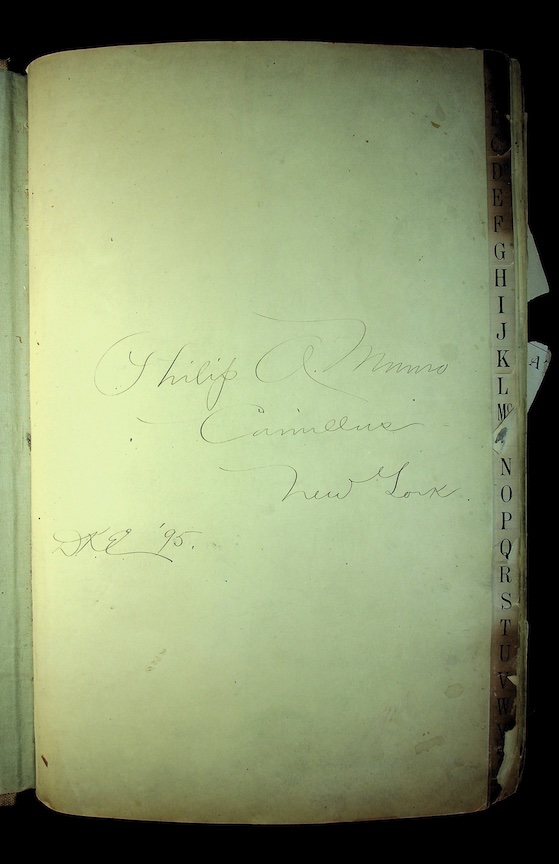 Philip A. Munro
Camillus
New York.
DKE '95.
C
D
E
F
G
H
I
J
K
L
Mc
N
O
P
Q
R
S
T
U
V
W
A